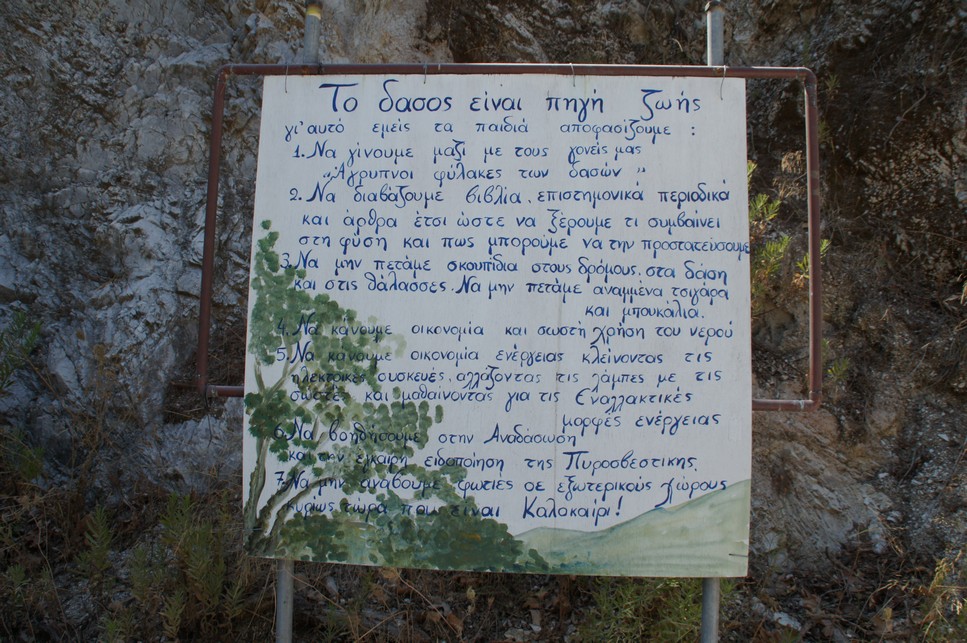 Το δασος είναι πηγή ζωής
γι'αυτό εμείς τα παιδιά αποφασίζουμε :
1. Να γίνουμε μαζι με τους γονείς μας
"Άγρυπνοι φύλακες των δασών"
2. Να διαβάζουμε βιβλία, επιστημονικά περιοδικά
και άρθρα έτσι ώστε να ξέρουμε τι συμβαίνει
στη φύση και πως μπορούμε να την προστατεύσουμε
3. Να μην πετάμε σκουπίδια στους δρόμους, στα δάση
και στις θάλασσες. Να μην πετάμε αναμμένα τσιγάρα
και μπουκάλια.
4. Να κάνουμε οικονομία και σωστή χρήση του νερού
5. Να κάνουμε οικονομία ενέργειας κλείνοντας τις
ηλεκτρικές συσκευές, αλλάζοντας τις λάμπες με τις
σωστές και μαθαίνοντας για τις Εναλλακτικές
μορφές ενέργειας
6. Να βοηθήσουμε στην Αναδάσωση
και την έγκαιρη ειδοποίηση της Πυροσβεστικής.
7. Να μην ανάβουμε φωτιές σε εξωτερικούς χώρους
κυρίως τώρα που είναι Καλοκαίρι!